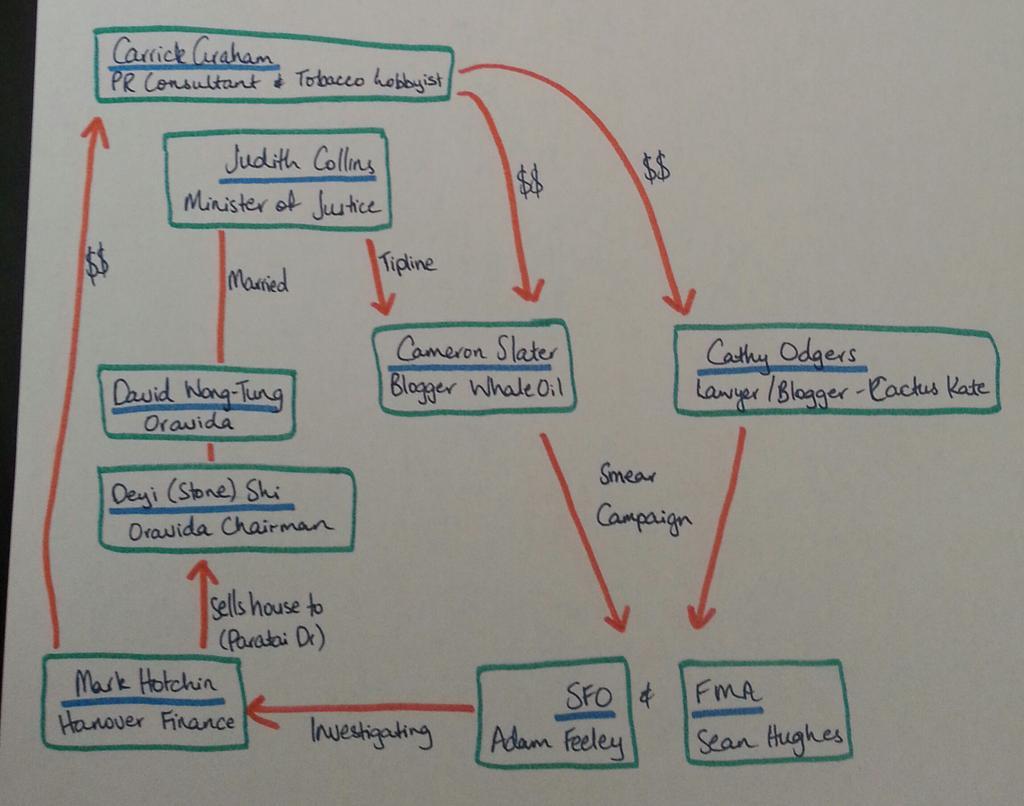 Carrick Graham
PR Consultant & Tobacco Lobbyist
Judith Collins
Minister of Justice
$$
$$
$$
Married
Tipline
Cameron Slater
Blogger WhaleOil
Cathy Odgers
Lawyer/Blogger - Cactus Kate
David Wong-Tung
Oravida
Deyi (Stone) Shi
Oravida Chairman
Smear
Campaign
Sells house to
(Paratai Dr)
Mark Hotchin
Hanover Finance
Investigating
SFO
Adam Feeley
&
FMA
Sean Hughes